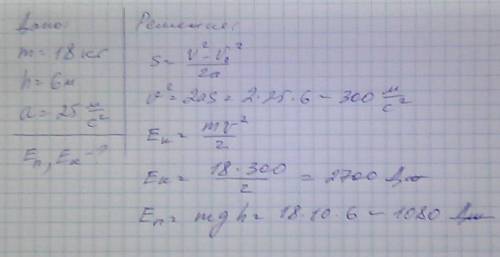 Дано:
m = 18 кг
h = 6 м
a = 25 м/с²
Eп, Eк - ?
Решение:
S = (V² - V₀²)/2a
V² = 2aS = 2·25·6 = 300 м/с²
Eк = mV²/2
Eк = 18·300/2 = 2700 Дж
Eп = mgh = 18·10·6 = 1080 Дж